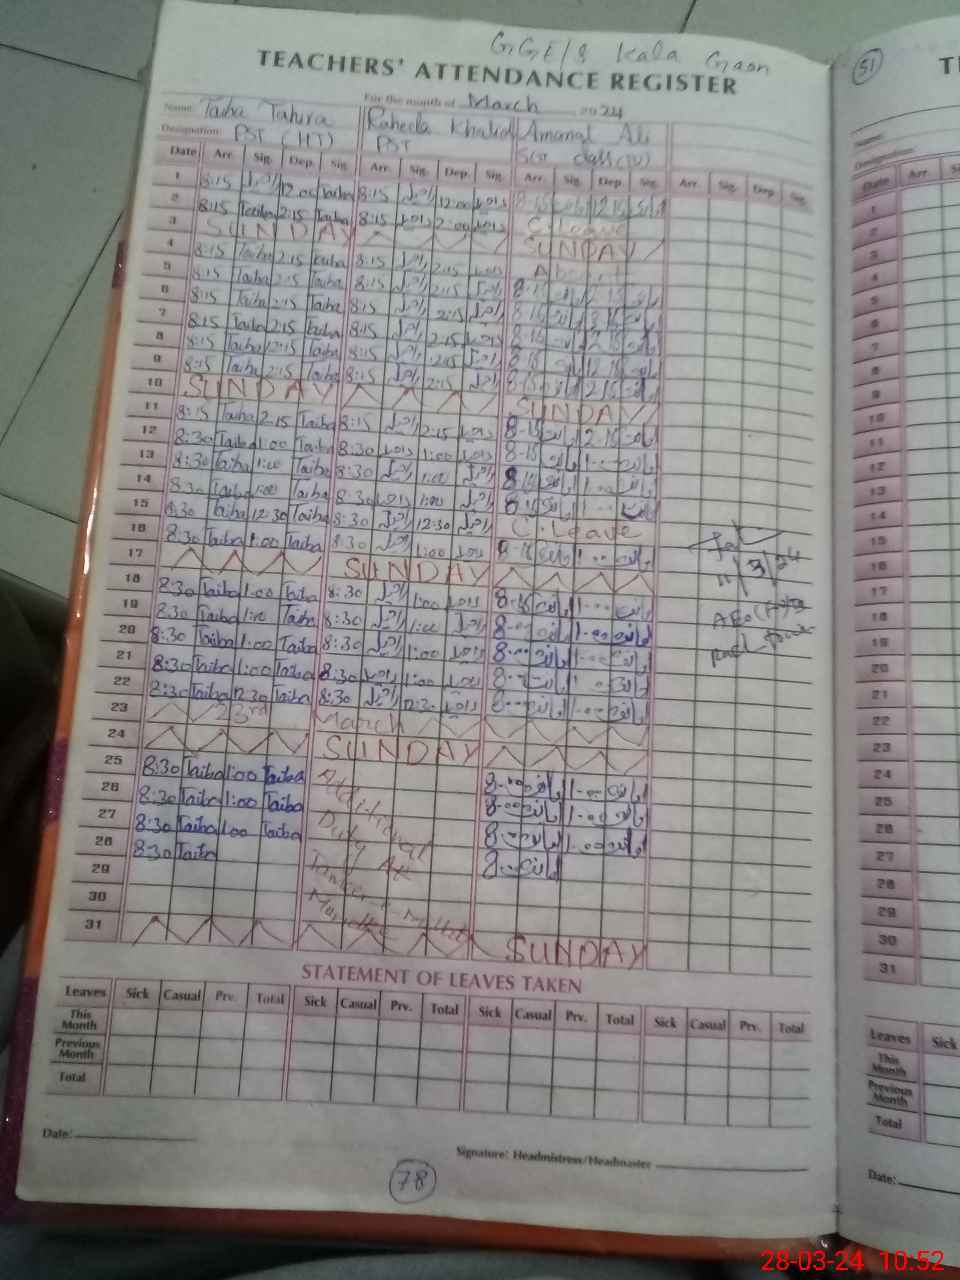 GGE/S Kala Gaon
TEACHERS' ATTENDANCE REGISTER
For the month of March 2024
Name: Taiba Tahira Raheela Khalid Amanat Ali
Designation: PST (HT) PST
Date Arr. Sig. Dep. Sig. Arr. Sig. Dep. Sig. Arr. Sig. Dep. Sig. Arr. Sig. Dep. Sig.
1 8:15 راحیلہ 12:00 Taiba 8:15 راحیلہ 12:00 راحیلہ 8-15 امانت 12-15 امانت
2 8:15 Taiba 2:15 Taiba 8:15 راحیلہ 2:00 راحیلہ C. Leave
3 SUNDAY SUNDAY
4 8:15 Taiba 2:15 Taiba 8:15 راحیلہ 2:15 راحیلہ Absent
5 8:15 Taiba 2:15 Taiba 8:15 راحیلہ 2:15 راحیلہ 8-15 امانت 2-15 امانت
6 8:15 Taiba 2:15 Taiba 8:15 راحیلہ 2:15 راحیلہ 8-15 امانت 2-15 امانت
7 8:15 Taiba 2:15 Taiba 8:15 راحیلہ 2:15 راحیلہ 8-15 امانت 2-15 امانت
8 8:15 Taiba 12:15 Taiba 8:15 راحیلہ 12:15 راحیلہ 8-15 امانت 12-15 امانت
9 8:15 Taiba 2:15 Taiba 8:15 راحیلہ 2:15 راحیلہ 8-15 امانت 2-15 امانت
10 SUNDAY SUNDAY
11 8:15 Taiba 2:15 Taiba 8:15 راحیلہ 2:15 راحیلہ 8-15 امانت 2-15 امانت
12 8:30 Taiba 1:00 Taiba 8:30 راحیلہ 1:00 راحیلہ 8-15 امانت 1-00 امانت
13 8:30 Taiba 1:00 Taiba 8:30 راحیلہ 1:00 راحیلہ 8-15 امانت 1-00 امانت
14 8:30 Taiba 1:00 Taiba 8:30 راحیلہ 1:00 راحیلہ 8-15 امانت 1-00 امانت
15 8:30 Taiba 12:30 Taiba 8:30 راحیلہ 12:30 راحیلہ C. Leave
16 8:30 Taiba 1:00 Taiba 8:30 راحیلہ 1:00 راحیلہ 8-15 امانت 1-00 امانت
11/3/24
17 SUNDAY
18 8:30 Taiba 1:00 Taiba 8:30 راحیلہ 1:00 راحیلہ 8-15 امانت 1-00 امانت
19 8:30 Taiba 1:00 Taiba 8:30 راحیلہ 1:00 راحیلہ 8-00 امانت 1-00 امانت
20 8:30 Taiba 1:00 Taiba 8:30 راحیلہ 1:00 راحیلہ 8-00 امانت 1-00 امانت
21 8:30 Taiba 1:00 Taiba 8:30 راحیلہ 1:00 راحیلہ 8-00 امانت 1-00 امانت
22 8:30 Taiba 12:30 Taiba 8:30 راحیلہ 12:30 راحیلہ 8-00 امانت 1-00 امانت
23 23rd March
24 SUNDAY
25 8:30 Taiba 1:00 Taiba 8-00 امانت 1-00 امانت
26 8:30 Taiba 1:00 Taiba 8-00 امانت 1-00 امانت
27 8:30 Taiba 1:00 Taiba 8-00 امانت 1-00 امانت
28 8:30 Taiba 8-00 امانت
Additional
Duty At
29
30
31 SUNDAY
STATEMENT OF LEAVES TAKEN
Leaves Sick Casual Prv. Total Sick Casual Prv. Total Sick Casual Prv. Total Sick Casual Prv. Total
This Month
Previous Month
Total
Date:
Signature: Headmistress/Headmaster
78
51
Name:
Designation:
Date Arr.
1
2
3
4
5
6
7
8
9
10
11
12
13
14
15
16
17
18
19
20
21
22
23
24
25
26
27
28
29
30
31
Leaves Sick
This Month
Previous Month
Total
Date:
28-03-24 10:52